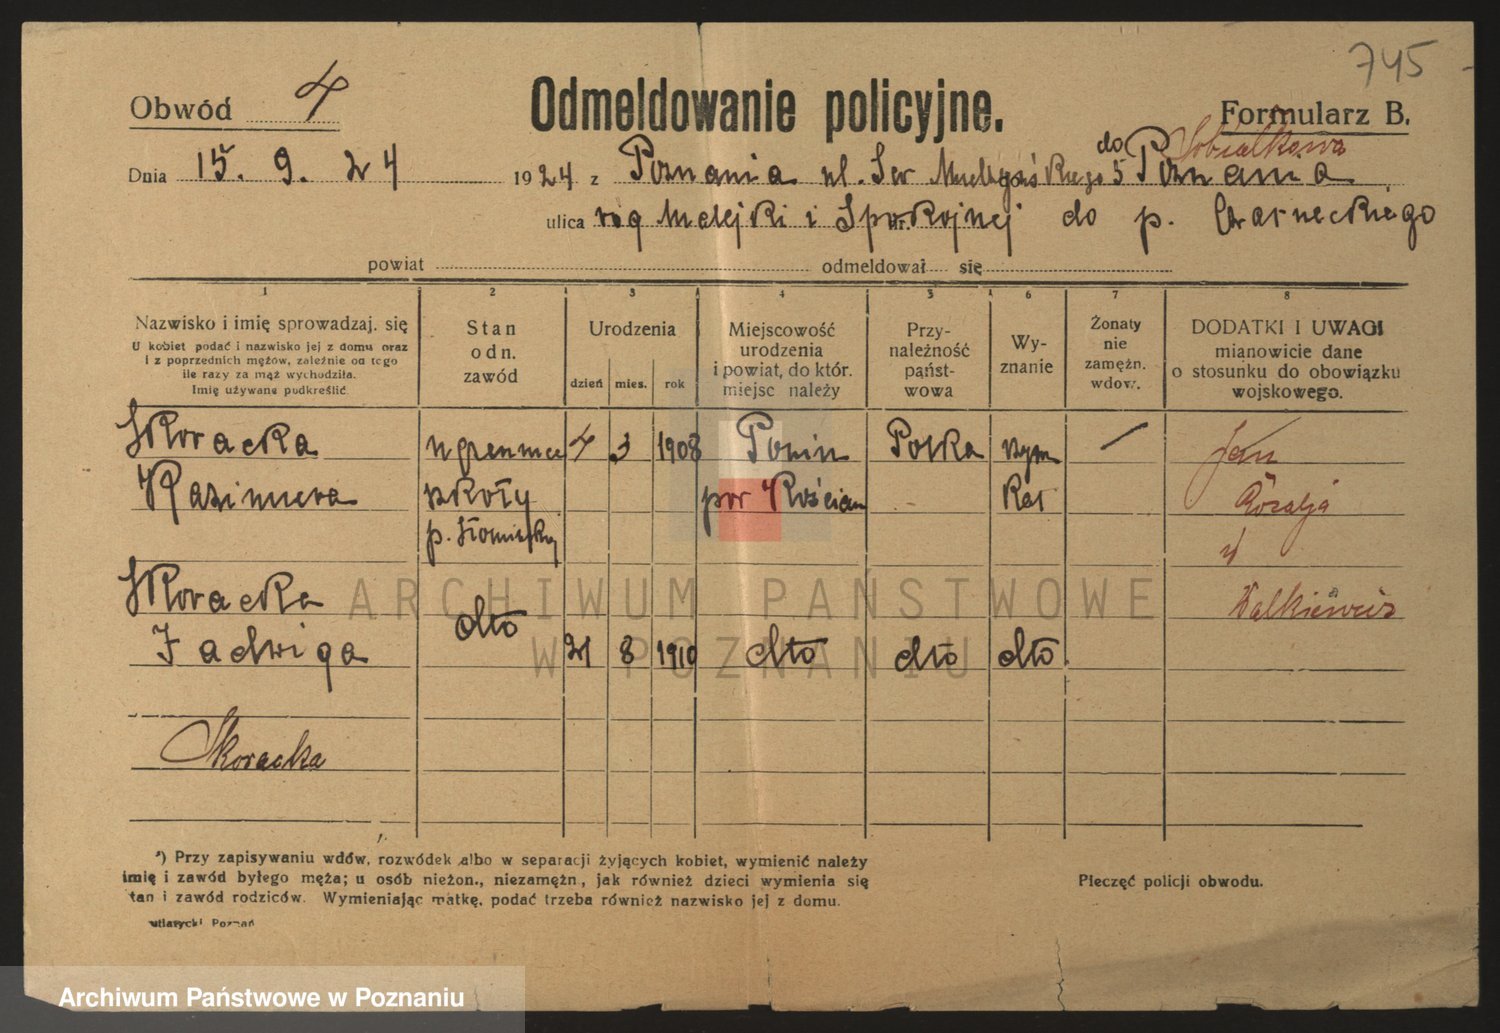 745
Obwód 4
Odmeldowanie policyjne.
Formularz B.
Dnia 15. 9. 24 1924 z Poznania ul. Sew Mielżyńskiego 5 do Poznania
ulica róg Matejki i Spokojnej nr. do p. Czarneckiego
powiat odmeldował się
1 2 3 4 5 6 7 8
Nazwisko i imię sprowadzaj. się
U kobiet podać i nazwisko jej z domu oraz
i z poprzednich mężów, zależnie od tego
ile razy za mąż wychodziła.
Imię używane podkreślić
Stan
odn.
zawód
Urodzenia
dzień mies. rok
Miejscowość
urodzenia
i powiat, do któr.
miejsc należy
Przy-
należność
państ-
wowa
Wy-
znanie
Żonaty
nie
zamężn.
wdow.
DODATKI I UWAGI
mianowicie dane
o stosunku do obowiązku
wojskowego.
Skoracka uczennica 4 3 1908 Ponin Polka rzym Jan
Kazimiera szkoły pow Kościan Kat Rozalja
p. Słomińskiej
Skoracka Walkiewicz
Jadwiga dto 21 8 1910 dto dto dto
Skoracka
*) Przy zapisywaniu wdów, rozwódek albo w separacji żyjących kobiet, wymienić należy
imię i zawód byłego męża; u osób nieżon., niezamężn., jak również dzieci wymienia się
stan i zawód rodziców. Wymieniając matkę, podać trzeba również nazwisko jej z domu.
Pieczęć policji obwodu.
Poznań
ARCHIWUM PAŃSTWOWE
W POZNANIU
Archiwum Państwowe w Poznaniu